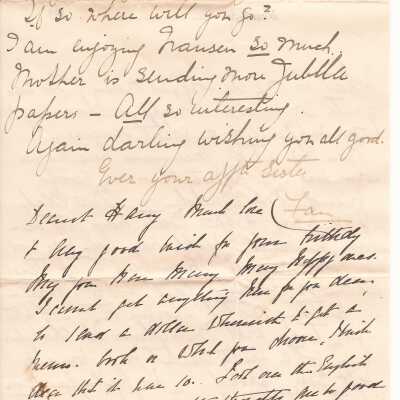 If so where will you go?
I am enjoying Nansen so much.
Mother is sending more Jubilee
papers – All so interesting.
Again darling wishing you all good.
Ever your afft sister
Fan
Dearest Harry Much love
& very good wish for your birthday
May you have many many happy ones.
I cannot get anything here for you dear
so send a dollar wherewith to get a
book or what you choose,
that it was so. over the English
to good